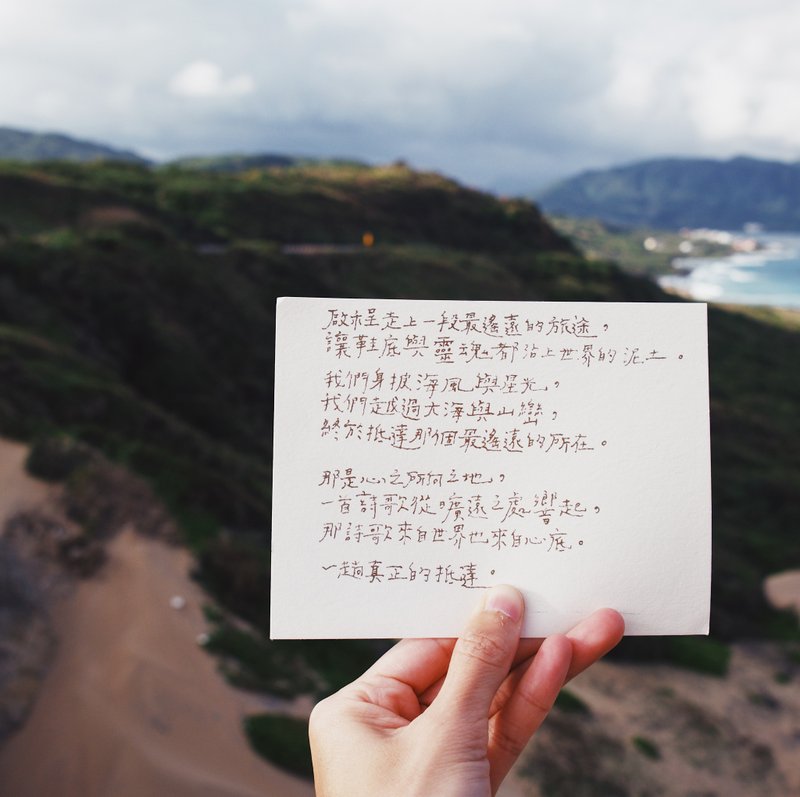 啟程走上一段最遙遠的旅途，
讓鞋底與靈魂都沾上世界的泥土。
我們身披海風與星光，
我們越過大海與山巒，
終於抵達那個最遙遠的所在。
那是心之所向之地，
一首詩歌從廣遠之處響起，
那詩歌來自世界也來自心底。
一趟真正的抵達。